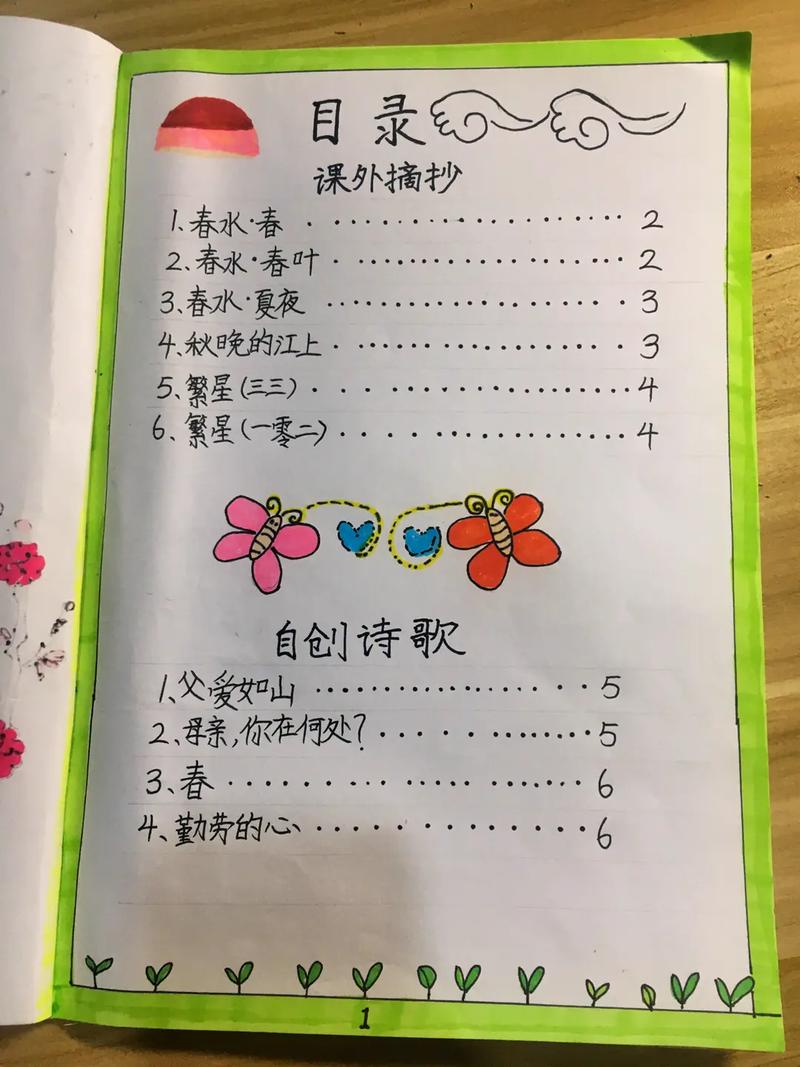 目录
课外摘抄
1、春水·春 · · · · · · · · · · · · · · · · · · · · 2
2、春水·春叶 · · · · · · · · · · · · · · · · · · · · 2
3、春水·夏夜 · · · · · · · · · · · · · · · · · · · · 3
4、秋晚的江上 · · · · · · · · · · · · · · · · · · · · 3
5、繁星(三三) · · · · · · · · · · · · · · · · · · · · 4
6、繁星(一零二) · · · · · · · · · · · · · · · · · · · · 4
自创诗歌
1、父爱如山 · · · · · · · · · · · · · · · · · · · · 5
2、母亲,你在何处? · · · · · · · · · · · · · 5
3、春 · · · · · · · · · · · · · · · · · · · · 6
4、勤劳的心 · · · · · · · · · · · · · · · · · · 6
1